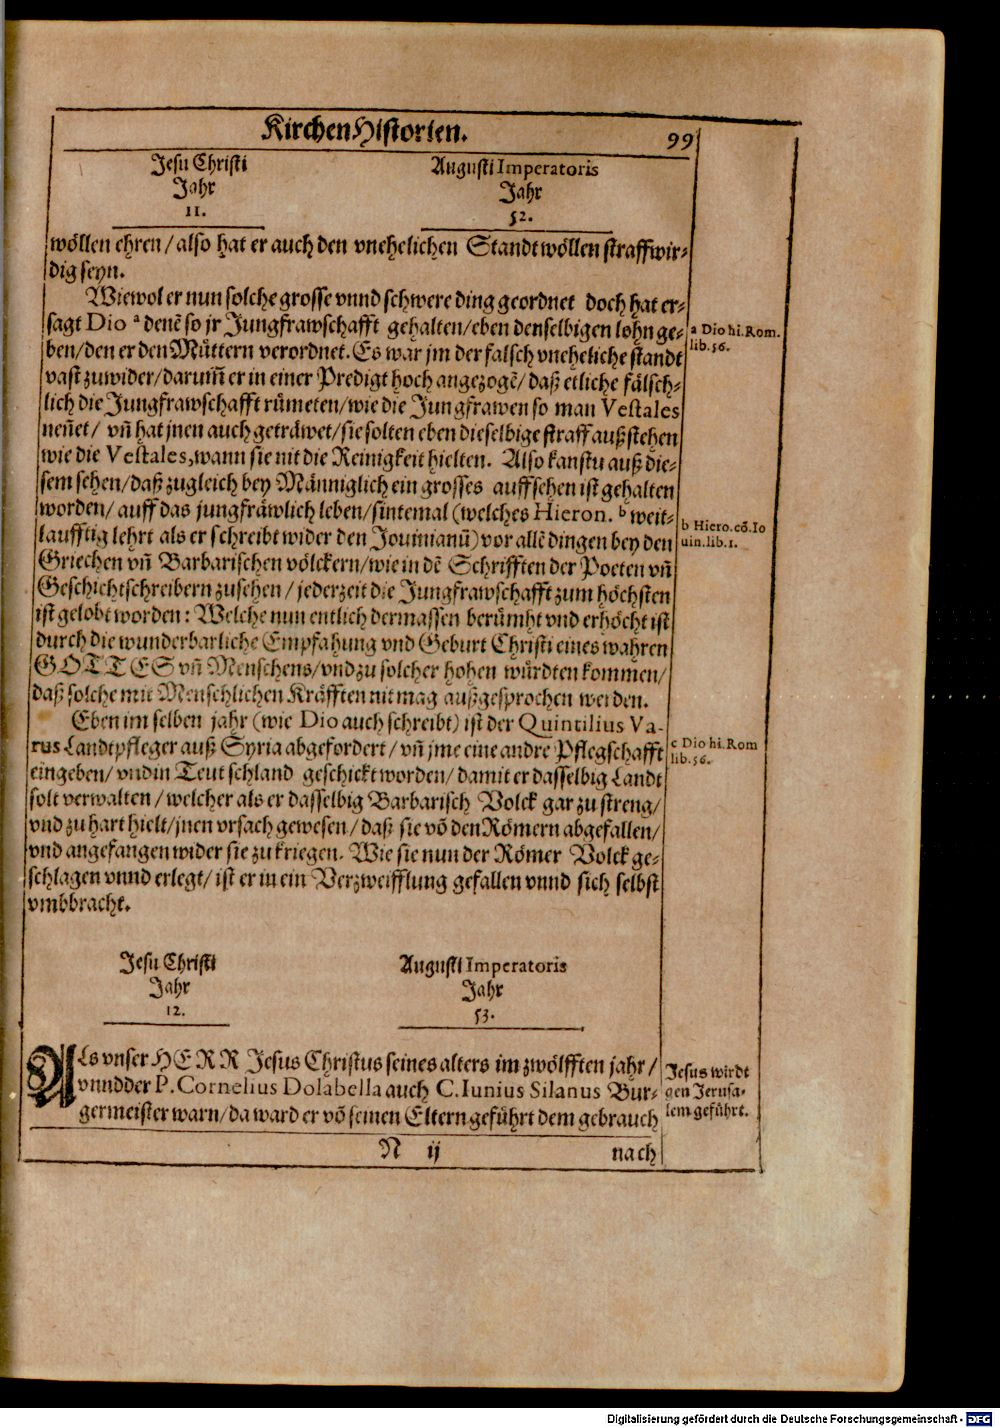 KirchenHistorien. 99
Jesu Christi
Jahr
11.
Augusti Imperatoris
Jahr
52.
wöllen ehren / also hat er auch den vnehelichen Standt wöllen straffwir-
dig seyn.
Wiewol er nun solche grosse vnnd schwere ding geordnet doch hat er-
sagt Dio a denē so jr Jungfrawschafft gehalten / eben denselbigen lohn ge-
ben / den er den Müttern verordnet. Es war jm der falsch vneheliche standt
vast zuwider / darum̄ er in einer Predigt hoch angezogē / daß etliche fälsch-
lich die Jungfrawschafft rümeten / wie die Jungfrawen so man Vestales
nen̄et / vn̄ hat jnen auch geträwet / sie solten eben dieselbige straff außstehen
wie die Vestales, wann sie nit die Reinigkeit hielten. Also kanstu auß die-
sem sehen / daß zugleich bey Männiglich ein grosses auffsehen ist gehalten
worden / auff das jungfräwlich leben / sintemal (welches Hieron. b weit-
laufftig lehrt als er schreibt wider den Jouinianū) vor allē dingen bey den
Griechen vn̄ Barbarischen völckern / wie in dē Schrifften der Poeten vn̄
Geschichtschreibern zusehen / jederzeit die Jungfrawschafft zum höchsten
ist gelobt worden: Welche nun entlich dermassen berümht vnd erhöcht ist
durch die wunderbarliche Empfahung vnd Geburt Christi eines wahren
GOTTES vn̄ Menschens / vnd zu solcher hohen würdten kommen /
daß solche mit Menschlichen Kräfften nit mag außgesprochen werden.
Eben im selben jahr (wie Dio auch schreibt) ist der Quintilius Va-
rus Landtpfleger auß Syria abgefordert / vn̄ jme eine andre Pflegschafft
eingeben / vnd in Teutschland geschickt worden / damit er dasselbig Landt
solt verwalten / welcher als er dasselbig Barbarisch Volck gar zu streng /
vnd zu hart hielt / jnen vrsach gewesen / daß sie vō den Römern abgefallen /
vnd angefangen wider sie zu kriegen. Wie sie nun der Römer Volck ge-
schlagen vnnd erlegt / ist er in ein Verzweifflung gefallen vnnd sich selbst
vmbbracht.
a Dio hi. Rom.
lib. 56.
b Hiero. cō. Io
uin. lib. 1.
c Dio hi. Rom
lib. 56.
Jesu Christi
Jahr
12.
Augusti Imperatoris
Jahr
53.
Als vnser HERR Jesus Christus seines alters im zwölfften jahr /
vnndder P. Cornelius Dolabella auch C. Iunius Silanus Bur-
germeister warn / da ward er vō seinen Eltern geführt dem gebrauch
Jesus wirdt
gen Jerusa-
lem geführt.
N ij nach
Digitalisierung gefördert durch die Deutsche Forschungsgemeinschaft - DFG